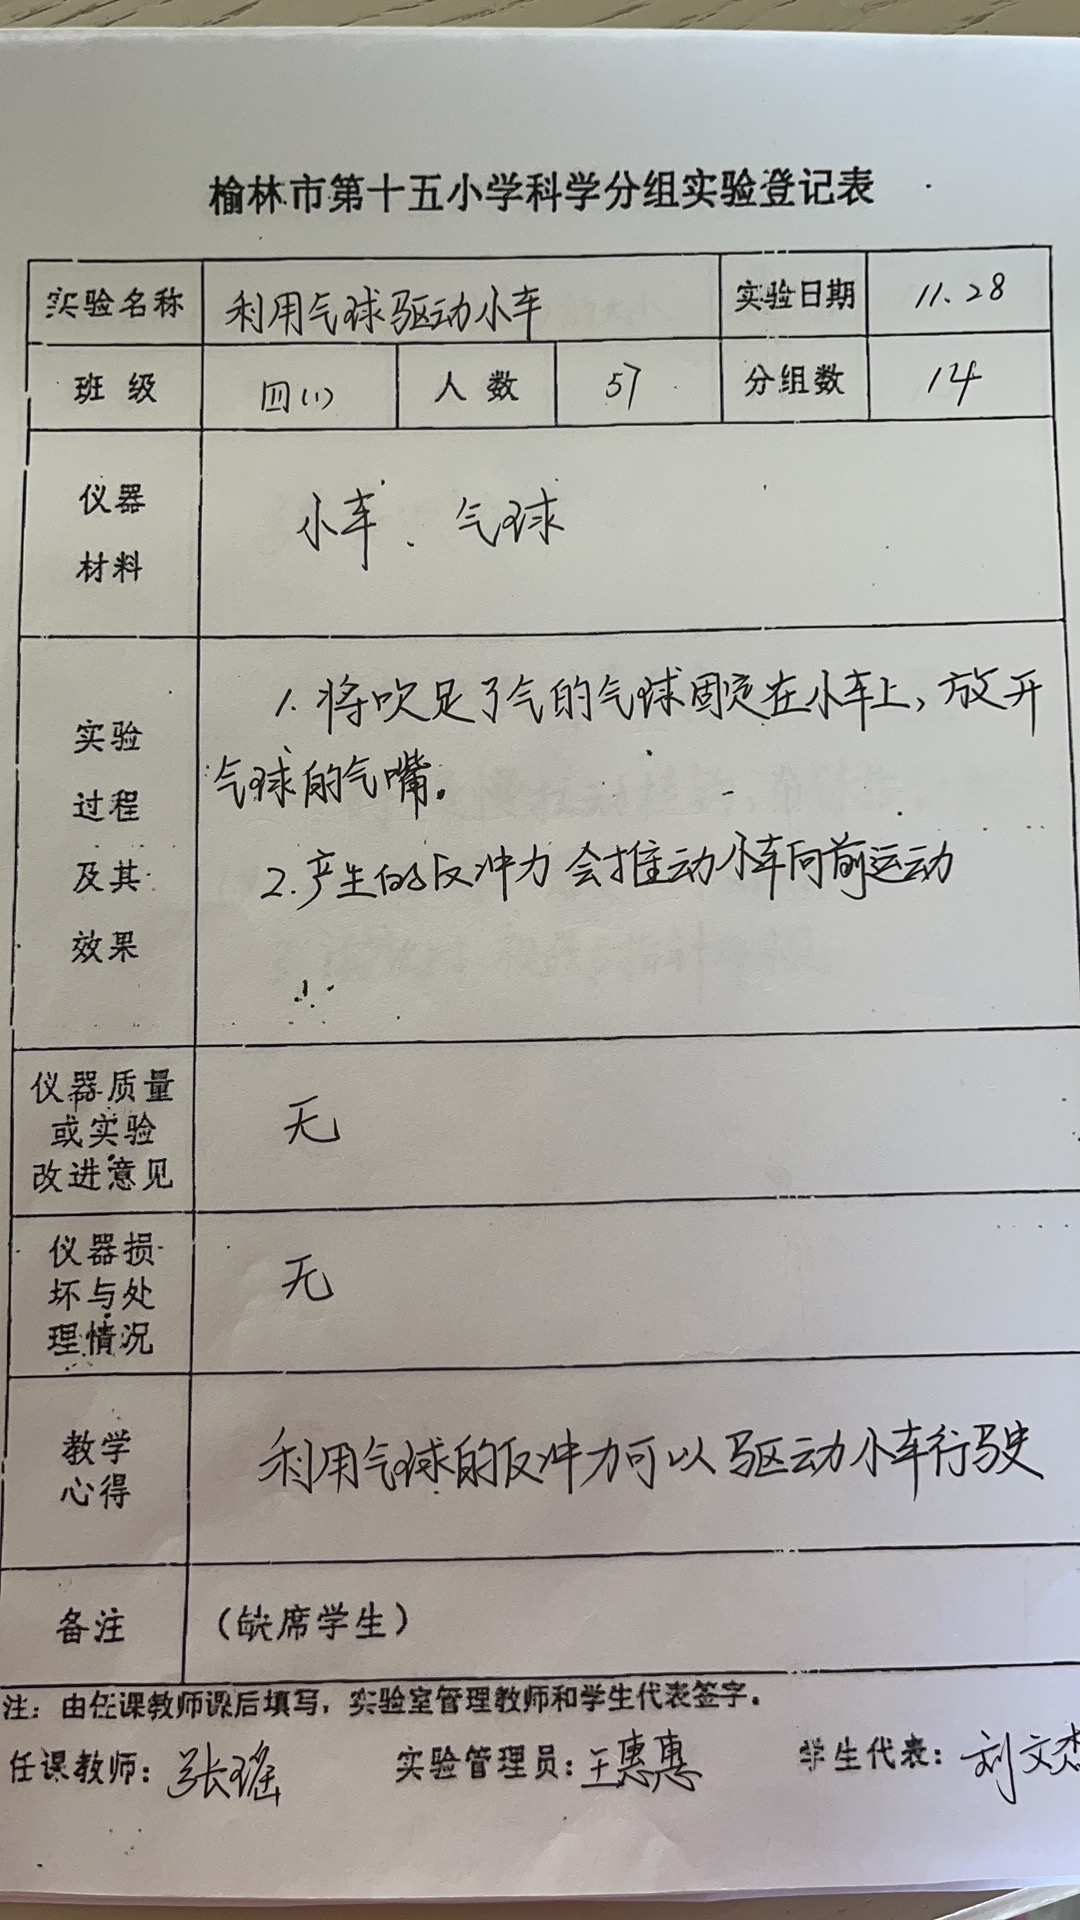 榆林市第十五小学科学分组实验登记表
实验名称 利用气球驱动小车 实验日期 11.28
班级 四(1) 人数 57 分组数 14
仪器
材料
小车、气球
实验
过程
及其
效果
1.将吹足了气的气球固定在小车上,放开
气球的气嘴。
2.产生的反冲力会推动小车向前运动
仪器质量
或实验
改进意见
无
仪器损
坏与处
理情况
无
教学
心得
利用气球的反冲力可以驱动小车行驶
备注 (缺席学生)
注：由任课教师课后填写，实验室管理教师和学生代表签字。
任课教师：张瑶 实验管理员：王惠惠 学生代表：刘文杰